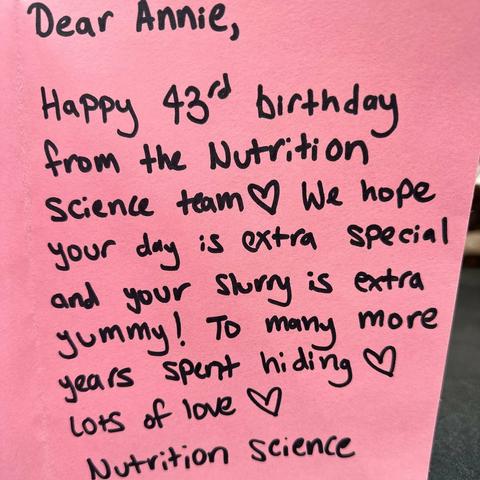 Dear Annie,
Happy 43rd birthday
from the Nutrition
science team♡ We hope
your day is extra special
and your slurry is extra
yummy! To many more
years spent hiding ♡
Lots of love ♡
Nutrition Science